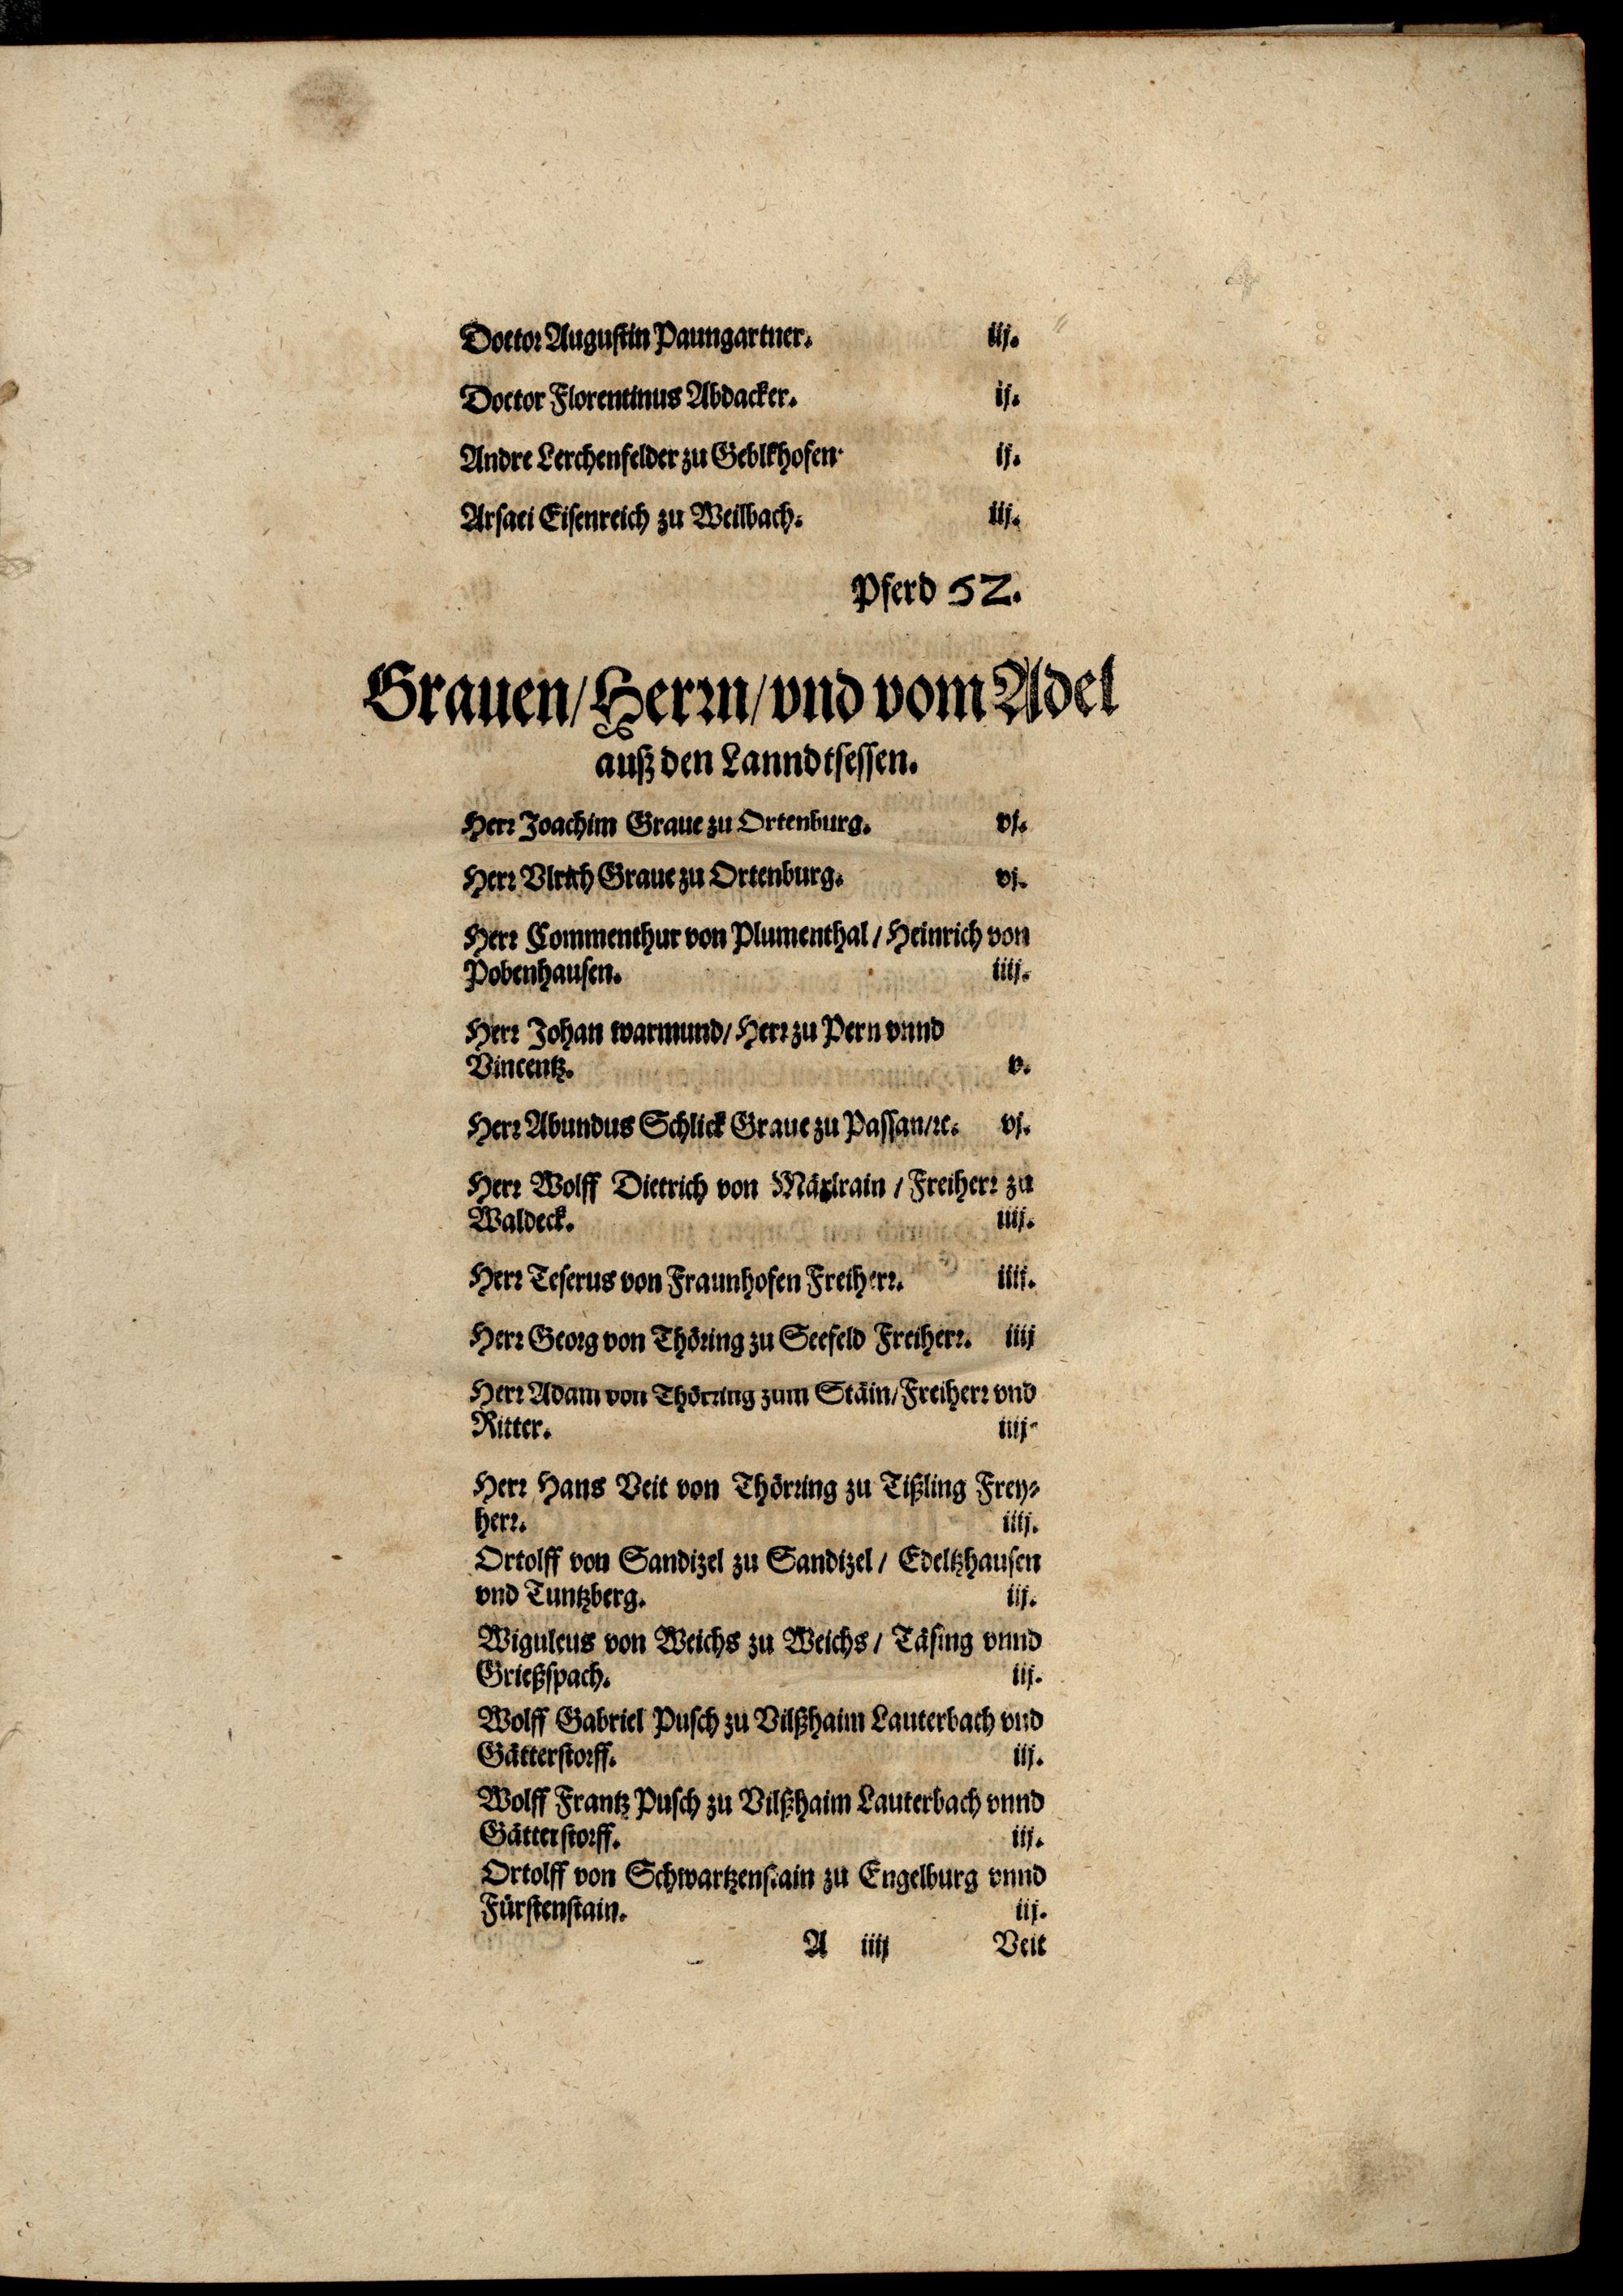 Doctor Augustin Paungartner. iij.
Doctor Florentinus Abdacker. ij.
Andre Lerchenfelder zu Geblkhofen. ij.
Arsaci Eisenreich zu Weilbach. iij.
Pferd 52.
Grauen/ Herrn/ vnd vom Adel
auß den Lanndtsessen.
Herr Joachim Graue zu Ortenburg. vj.
Herr Vlrich Graue zu Ortenburg. vj.
Herr Commenthur von Plumenthal / Heinrich von
Pobenhausen. iiij.
Herr Johan warmund/ Herr zu Pern vnnd
Vincentz. v.
Herr Abundus Schlick Graue zu Passan/ ꝛc. vj.
Herr Wolff Dietrich von Mäxlrain / Freiherr zu
Waldeck. iiij.
Herr Teserus von Fraunhofen Freiherr. iiij.
Herr Georg von Thöring zu Seefeld Freiherr. iiij
Herr Adam von Thörring zum Stäin/ Freiherr vnd
Ritter. iiij.
Herr Hans Veit von Thörring zu Tißling Frey⸗
herr. iiij.
Ortolff von Sandizel zu Sandizel / Edeltzhausen
vnd Tuntzberg. iij.
Wiguleus von Weichs zu Weichs / Täsing vnnd
Grießspach. iij.
Wolff Gabriel Pusch zu Vilßhaim Lauterbach vnd
Gätterstorff. iij.
Wolff Frantz Pusch zu Vilßhaim Lauterbach vnnd
Gätterstorff. iij.
Ortolff von Schwartzenstain zu Engelburg vnnd
Fürstenstain. iij.
A iiij Veit